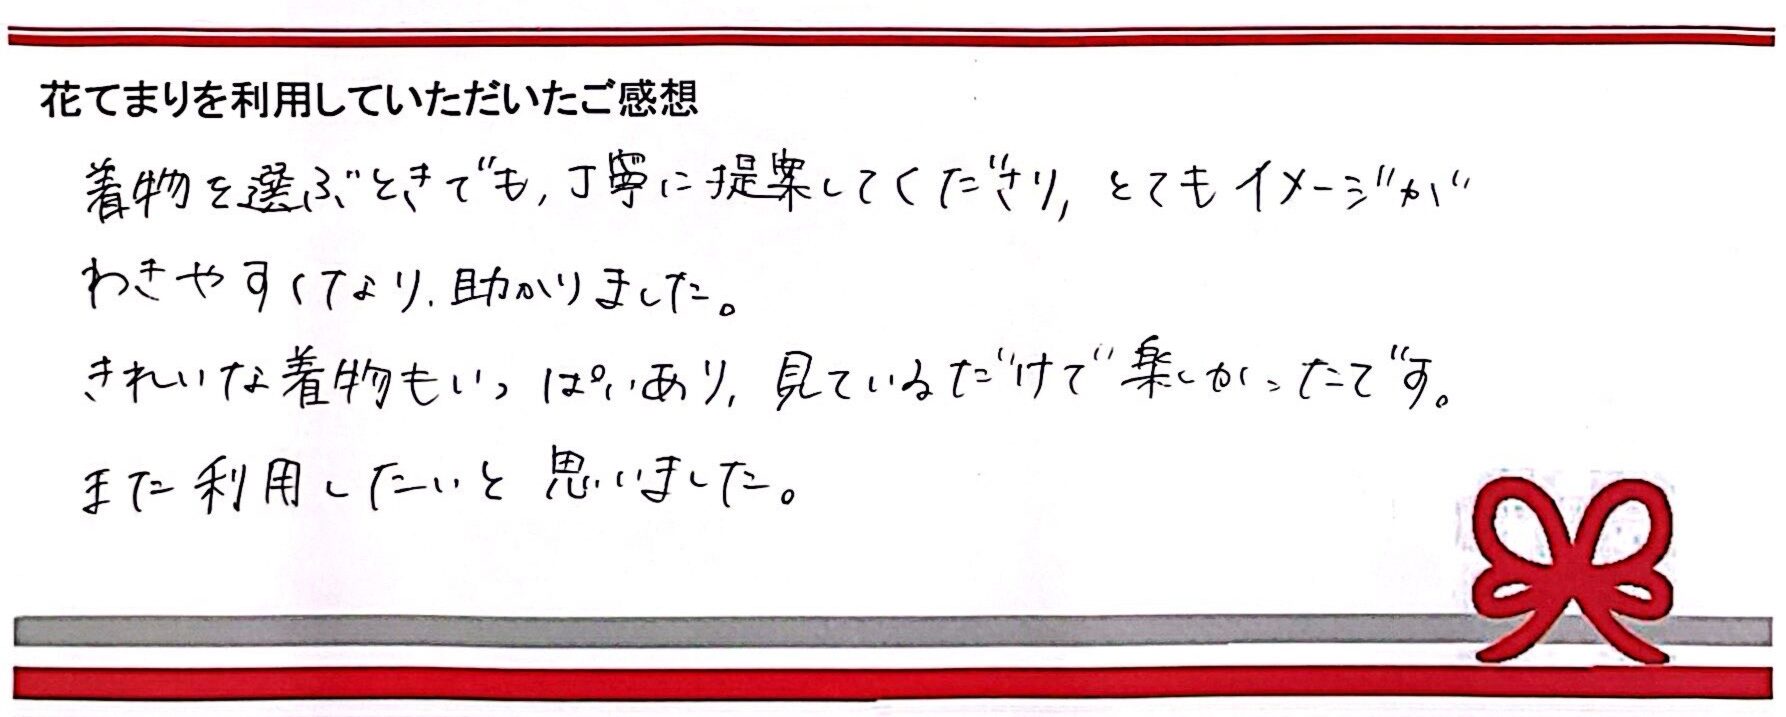 花てまりを利用していただいたご感想
着物を選ぶときでも,丁寧に提案してくださり,とてもイメージが
わきやすくなり,助かりました。
きれいな着物もいっぱいあり,見ているだけで楽しかったです。
また利用したいと思いました。